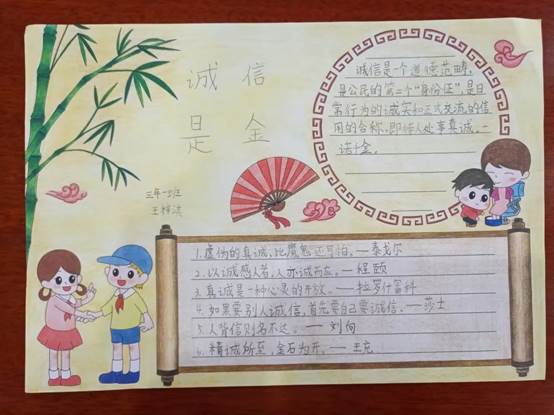 诚 信
是 金
三年一班
王梓洪
诚信是一个道德范畴,
是公民的第二个“身份证”,是日
常行为的诚实和正式交流的信
用的合称,即待人处事真诚,一
诺千金。
1.虚伪的真诚,比魔鬼还可怕。——泰戈尔
2.以诚感人者,人亦诚而应。——程颐
3.真诚是一种心灵的开放。——拉罗什富科
4.如果要别人诚信,首先要自己要诚信。——莎士
5.人背信则名不达。——刘向
6.精诚所至,金石为开。——王充